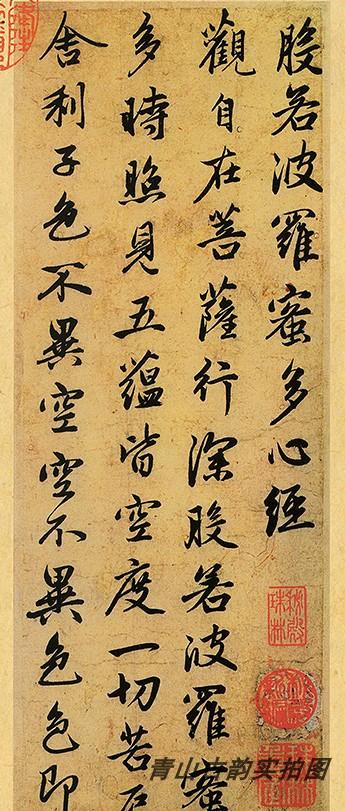 般若波羅蜜多心經
觀自在菩薩行深般若波羅蜜
多時照見五蘊皆空度一切苦厄
舍利子色不異空空不異色色即
秘殿珠林
青山古韵实拍图